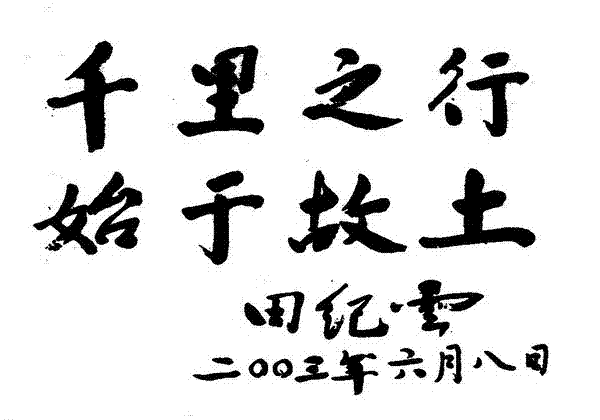 千里之行
始于故土
田纪雲
二〇〇三年六月八日